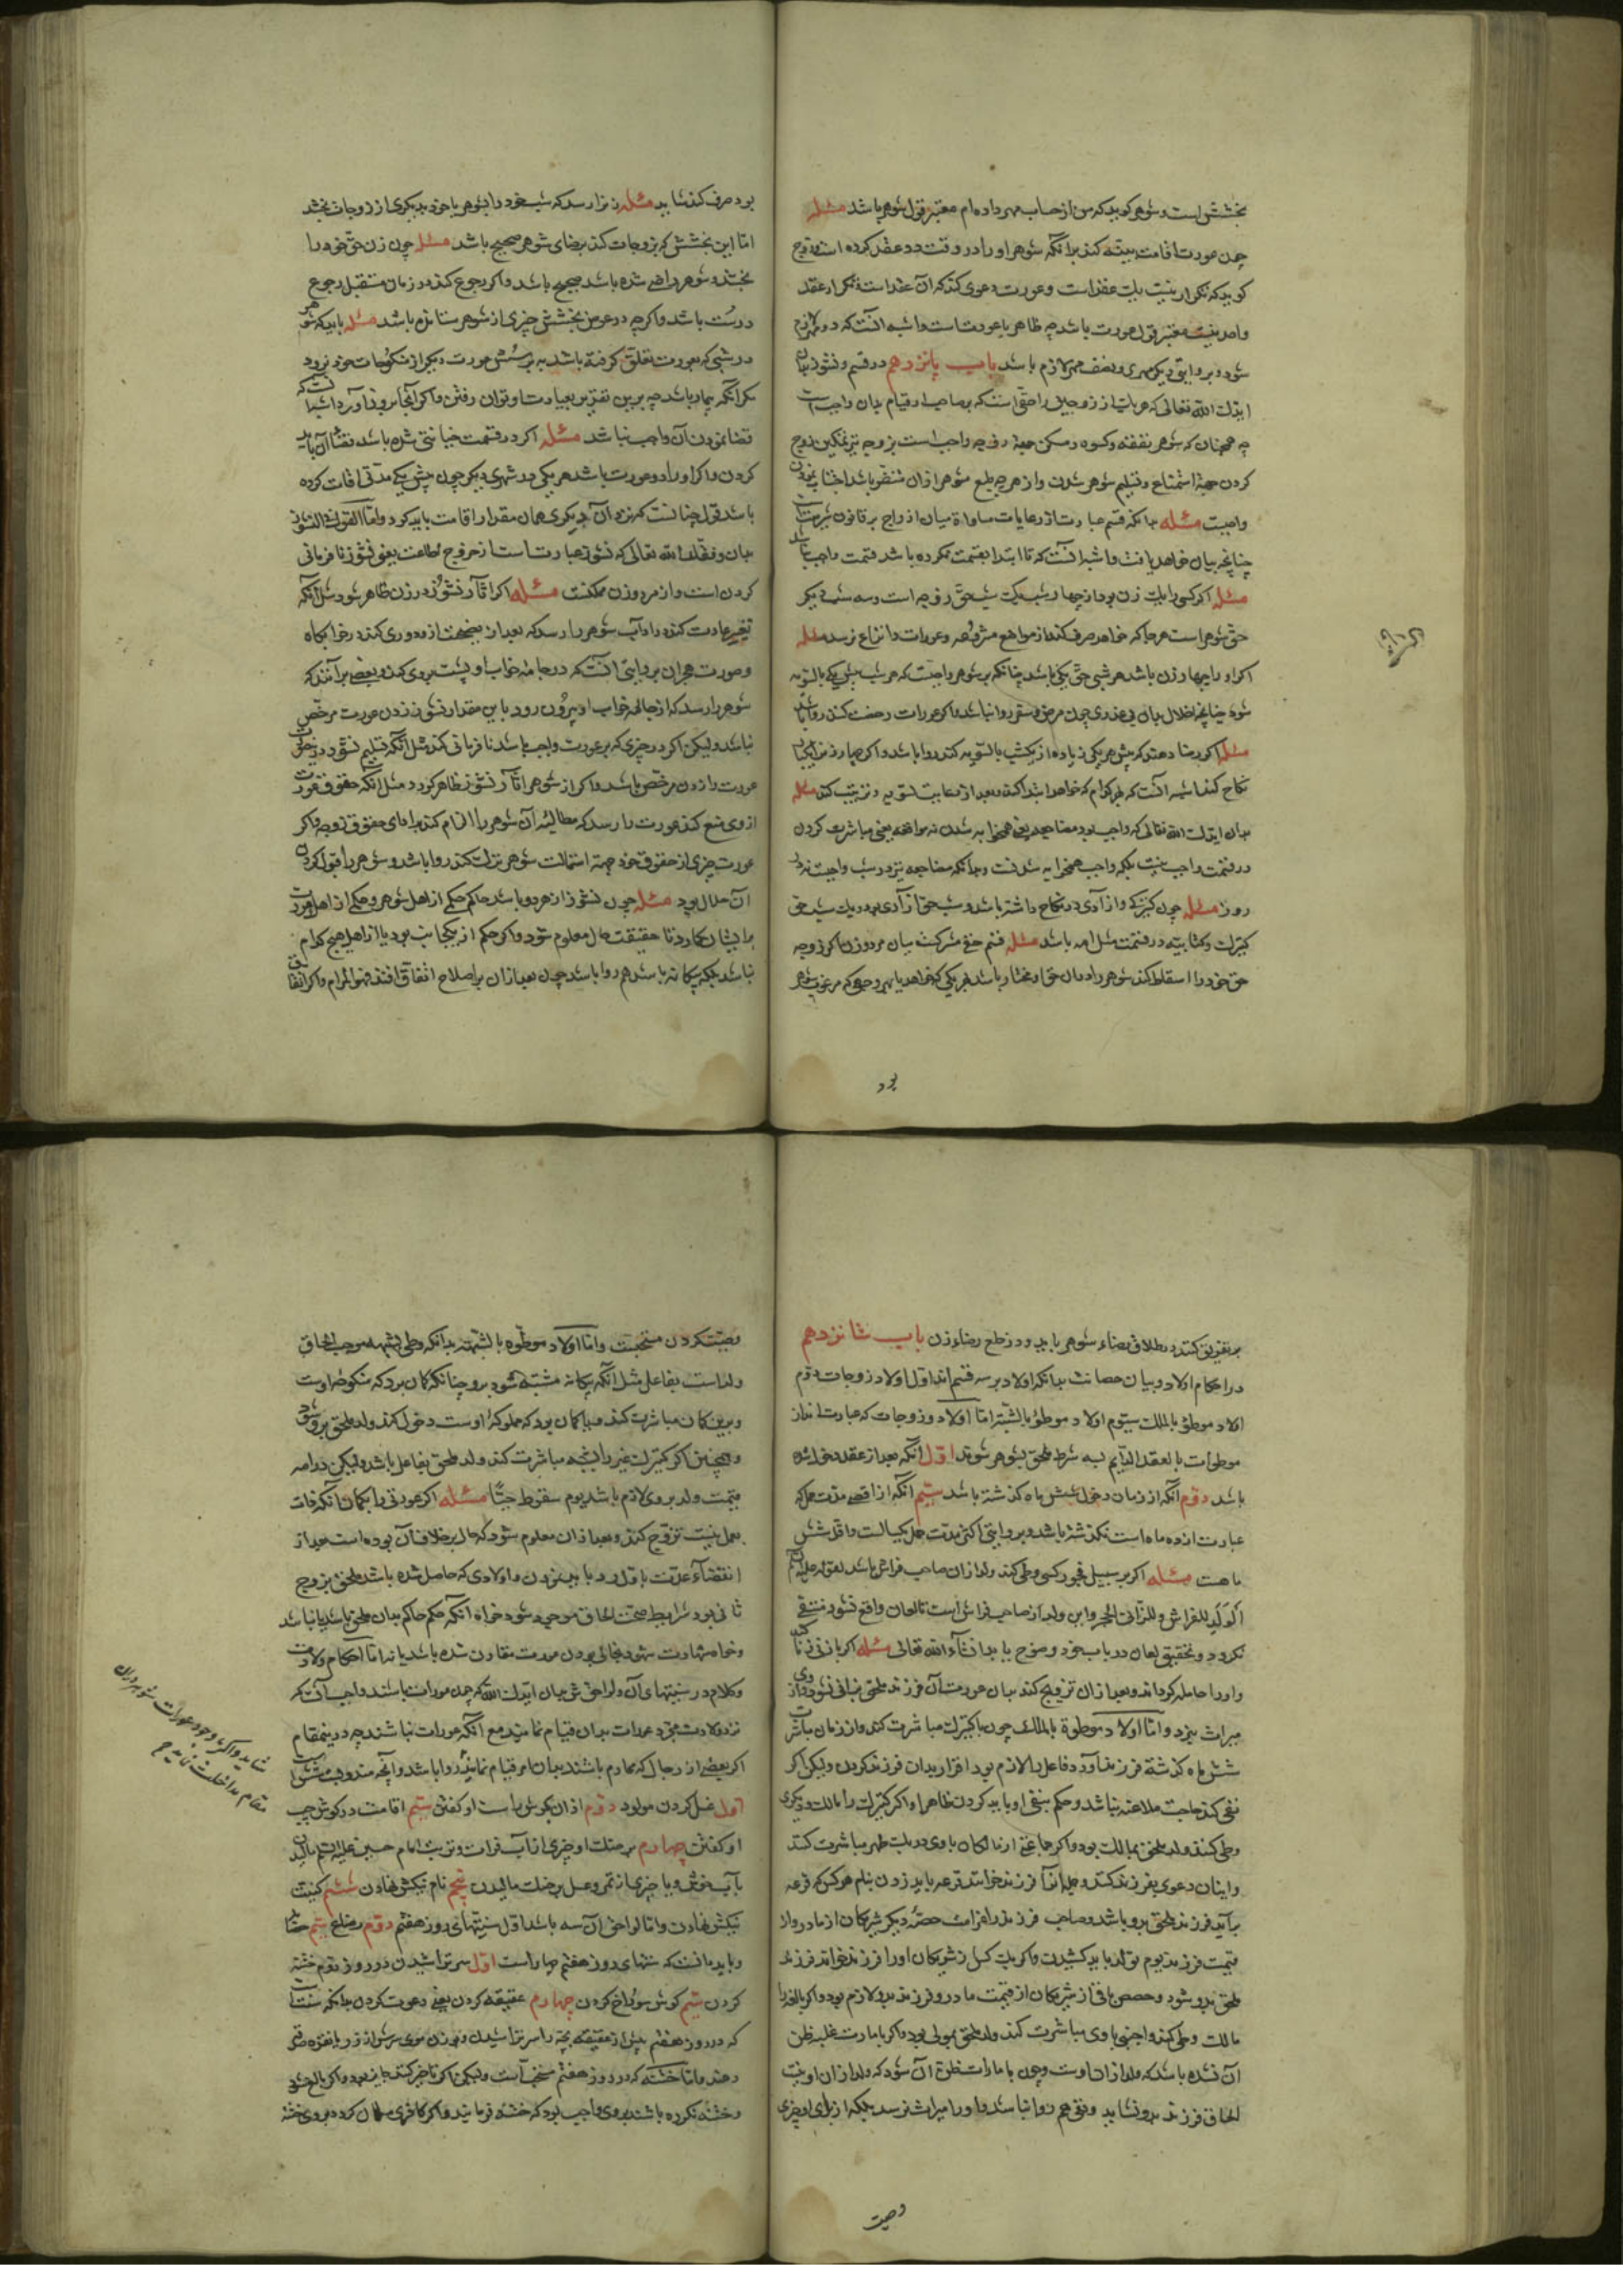 بخشش است و شوهر کوید که من از حساب مهر داده ام معتبر قول شوهر باشد مسئله
چون عورت اقامت بینه کند برانکه شوهر او را در دو وقت دو عقد کرده است و زوج
کوید که تکرار بینت یک عقد است و عورت دعوی کند که آن عقد است نه تکرار عقد
معتبر قول عورت باشد چه ظاهر با عورتست و اشبه آنست که دو مهر لازم
شود و بروایتی دیکر مهری و نصف مهر لازم باشد باب پانزدهم در قسم و نشوز بدان
ایدک الله تعالی که هر یک از زوجین را حقی است که بر صاحب او قیام بدان واجبست
چه همچنان که شوهر بنفقه و کسوه و مسکن جهة زوجه واجب است بزوجه نیز تمکین زوج
کردن جهة استمتاع و تسلیم شوهر شدن و از هر چه طبع شوهر از آن متنفر باشد اجتناب نمودن
واجبست مسئله بدانکه قسم عبارت از رعایت مساواة میان ازواج بر قانون شریعت
چنانچه بیان خواهد یافت و اشبه آنست که تا ابتدا بقسمت نکرده باشد قسمت واجب نباشد
مسئله اکر کسی را یک زن بود از چهار شب یک شب حق زوجه است و سه شب دیکر
حق شوهر است هر جا که خواهد صرف کند از مواضع مشروعه و عورات را نزاع نرسد مسئله
اکر او را چهار زن باشد هر شبی حق یکی باشد چنانکه بر شوهر واجبست که هر شب پیش یکی بالسویه
شود چنانچه اخلال بدان بی عذری چون مرض و سفر روا نباشد و اکر عورات رخصت کنند روا باشد
مسئله اکر رضا دهند که پیش هر یکی زیاده از یکشب بالسویه کند روا باشد و اکر چهار زن را یکبار
نکاح کند اشبه آنست که بهر کدام که خواهد ابتدا کند و بعد از آن رعایت تسویه و ترتیب کند مسئله
بدان ایدک الله تعالی که واجب بود مضاجعه یعنی همخوابه شدن نه مواقعه یعنی مباشرت کردن
در قسمت واجب نیست بلکه واجب همخوابه شدنست و بدانکه مضاجعه نیز در شب واجبست نه در
روز مسئله چون کنیزک و آزادی در نکاح داشته باشد دو شب حق آزادی بود و یک شب حق
کنیزک و کتابیه در قسمت مثل امه باشد مسئله قسم حق مشترکست میان مرد و زن اکر زوجه
حق خود را اسقاط کند شوهر را در آن حق او مختار باشد بهر یکی که خواهد یا بهر وجهی که مرغوب شوهر
بود
بود صرف کند شاید مسئله زن را رسد که شب خود را بشوهر یا خود بدیکری از زوجات بخشد
اما این بخشش که بزوجات کند برضای شوهر صحیح باشد مسئله چون زن حق خود را
بخشد و شوهر راضی شده باشد صحیح باشد و اکر رجوع کند در زمان مستقبل رجوع
درست باشد و اکر چه در عوض بخشش چیزی از شوهر ستانده باشد مسئله باید که شوهر
در شبی که بعورت تعلق کرفته باشد به پرسش عورت دیکر از منکوحات خود نرود
مکر آنکه بیمار باشد چه برین تقدیر بعیادت او توان رفتن و اکر آنجا بروز آورد اشبه آنست که
قضا نمودن آن واجب نباشد مسئله اکر در قسمت خیانتی شده باشد قضا آن باید
کردن و اکر او را دو عورت باشد هر یکی در شهری دیکر چون پیش یکی مدتی اقامت کرده
باشد قول چنانست که نزد آن دیکری همان مقدار اقامت باید کرد و اما القول فی النشوز
بدان وفقک الله تعالی که نشوز عبارتست از خروج اطاعت یعنی نشوز نافرمانی
کردن است و از مرد و زن ممکنست مسئله اکر اثار نشوز در زن ظاهر شود مثل آنکه
تغیر عادت کند در آداب شوهر را رسد که بعد از نصیحت از و دوری کند در خوابکاه
و صورت هجران بروایتی آنست که در جامه خواب او پشت بروی کند و بعضی برانند که
شوهر را رسد که از جامه خواب او بیرون رود با این مقدار نشوز زدن عورت مرخص
نباشد ولیکن اکر در چیزی که بر عورت واجب باشد نافرمانی کند مثل آنکه تسلیم نشود درین وقت
عورت را زدن مرخص باشد و اکر از شوهر اثار نشوز ظاهر کردد مثل آنکه حقوق عورت
از وی منع کند عورت را رسد که مطالبه آن شوهر را الزام کند بر ادای حقوق زوجه و اکر
عورت چیزی از حقوق خود جهة استمالت شوهر ترک کند روا باشد و شوهر را قبول کردن
آن حلال بود مسئله چون نشوز از هر دو باشد حاکم حکمی از اهل شوهر و حکمی از اهل عورت
بر ایشان کمارد تا حقیقت حال معلوم شود و اکر حکم از یکجانب بود یا از اهل هیچ کدام
نباشد بلکه بیکانه باشد هم روا باشد چون بعد از آن بر اصلاح اتفاق افتد فهو المرام و اکر اتفاق
بر تفریق کنند در طلاق رضاء شوهر باید و در خلع رضاء زن باب شانزدهم
در احکام اولاد و بیان حضانت بدانکه اولاد بر سه قسم اند اول اولاد زوجات دوم
اولاد موطوءة بالملک سیوم اولاد موطوءة بالشبهة اما اولاد زوجات که عبارتند از
موطوءات بالعقد الدایم بسه شرط ملحق بشوهر شوند اول آنکه بعد از عقد دخول شده
باشد دوم آنکه از زمان دخول شش ماه کذشته باشد سیم آنکه از اقصی مدت حمل که
عبارت از ده ماه است نکذشته باشد و بروایتی اکثر مدت حمل یکسالست و اقل شش
ماهست مسئله اکر بر سبیل فجور کسی وطی کند ولد از آن صاحب فراش باشد لقوله علیه السلم
الولد للفراش و للزانی الحجر و این ولد از صاحب فراش است تا لعان واقع نشود منتفی
نکردد و تحقیق لعان در باب خود وضوح یابد ان شاء الله تعالی مسئله اکر با زنی زنا کند
و او را حامله کرداند و بعد از آن تزویج کند بدان عورت آن فرزند ملحق بزانی نشود و از وی
میراث نبرد و اما اولاد موطوءة بالملک چون با کنیزک مباشرت کند و از زمان مباشرت
شش ماه کذشته فرزند آورد فاعل را لازم بود اقرار بدان فرزند کردن ولیکن اکر
نفی کند حاجت ملاعنه نباشد و حکم بنفی او باید کردن ظاهرا و اکر کنیزک را مالک و دیکری
وطی کنند ولد ملحق بمالک بود و اکر جماعتی از مالکان با وی در یک طهر مباشرت کنند
و ایشان دعوی بفرزند کنند و جمله آنرا فرزند خوانند قرعه باید زدن بنام هر کس که قرعه
برآید فرزند ملحق برو باشد و صاحب فرزند را غرامت حصه دیکر شریکان از مادر و از
قیمت فرزند بیوم تولد باید کشیدن و اکر یک کس از شریکان او را فرزند خواند فرزند
ملحق برو شود و حصص باقی از شریکان از قیمت مادر و فرزند برو لازم بود و اکر کنیزک را
مالک وطی کند و اجنبی با وی مباشرت کند ولد ملحق بمولی بود و اکر با مارت غلبه ظن
آن شده باشد که ولد از آن اوست و چون با مارات ظن آن شود که ولد از آن او نیست
الحاق فرزند برو نشاید و نفی هم روا نباشد و او را میراث نرسد بلکه از برای او چیزی
وصیت
وصیت کردن مستحبست و اما اولاد موطوءه بالشبهة بدانکه وطی بشبهه موجب الحاق
ولد است بفاعل مثل آنکه بیکانه مشتبه شود برو چنانکه کمان برد که منکوحه اوست
و برین کمان مباشرت کند و یا کمان برد که مملوکهٔ اوست دخول کند ولد ملحق برو شود
و همچنین اکر کنیزک غیر را بشبهه مباشرت کند ولد ملحق بفاعل باشد ولیکن در امه
قیمت ولد بر وی لازم باشد بیوم سقوط حیا مسئله اکر عورتی را بکمان آنکه ذات
بعل نیست تزوج کند و بعد از آن معلوم شود که حال بر خلاف آن بوده است بعد از
انقضاء عدت باول رد باید نمودن و اولادی که حاصل شده باشد ملحق بزوج
ثانی بود شرایط صحت الحاق موجود شود خواه آنکه حکم حاکم بدان ملحق باشد یا نباشد
و خواه شهادت شهود بخالی بودن عورت مقارن شده باشد یا نه اما احکام ولادت
و کلام در سنتهای آن و لواحقش بدان ایدک الله که چون عورات باشند واجب آنست که
نزد ولادت بجز عورات بدان قیام نمایند مع آنکه عورات نباشند چه درینمقام
اکر بعضی از رجال که محارم باشند بدان امر قیام نمایند روا باشد و آنچه مندوبست شش است
اول غسل کردن مولود دوم اذان بکوش راست او کفتن سیم اقامت در کوش چپ
او کفتن چهارم بر حنک او چیزی از آب فرات و تربت امام حسین علیه السلم مالیدن
یا آب خوش و یا چیزی از تمر و عسل بر حنک مالیدن پنجم نام نیکش نهادن ششم کنیت
نیکش نهادن و اما لواحق آن سه باشد اول سنتهای روز هفتم دوم رضاع سیم حضانت
و باید دانست که سنتهای روز هفتم چهار است اول سر تراشیدن در روز دوم ختنه
کردن سیم کوش سوراخ کردن چهارم عقیقه کردن یعنی دعوت کردن بدانکه سنتست
که در روز هفتم پیش از عقیقه بچه را سر تراشیدن و بوزن موی سرش از زر یا نقره صدقه
دهند و اما ختنه که در روز هفتم مستحب است ولیکن اکر تاخیر کنند جایز بود و اکر بالغ شود
و ختنه نکرده باشند بر وی واجب بود که ختنه فرمایند و اکر کافری مسلمان کردد بروی ختنه
شاید و اکر با وجود عورات شوهر در آن
مقام مداخلت نماید ح